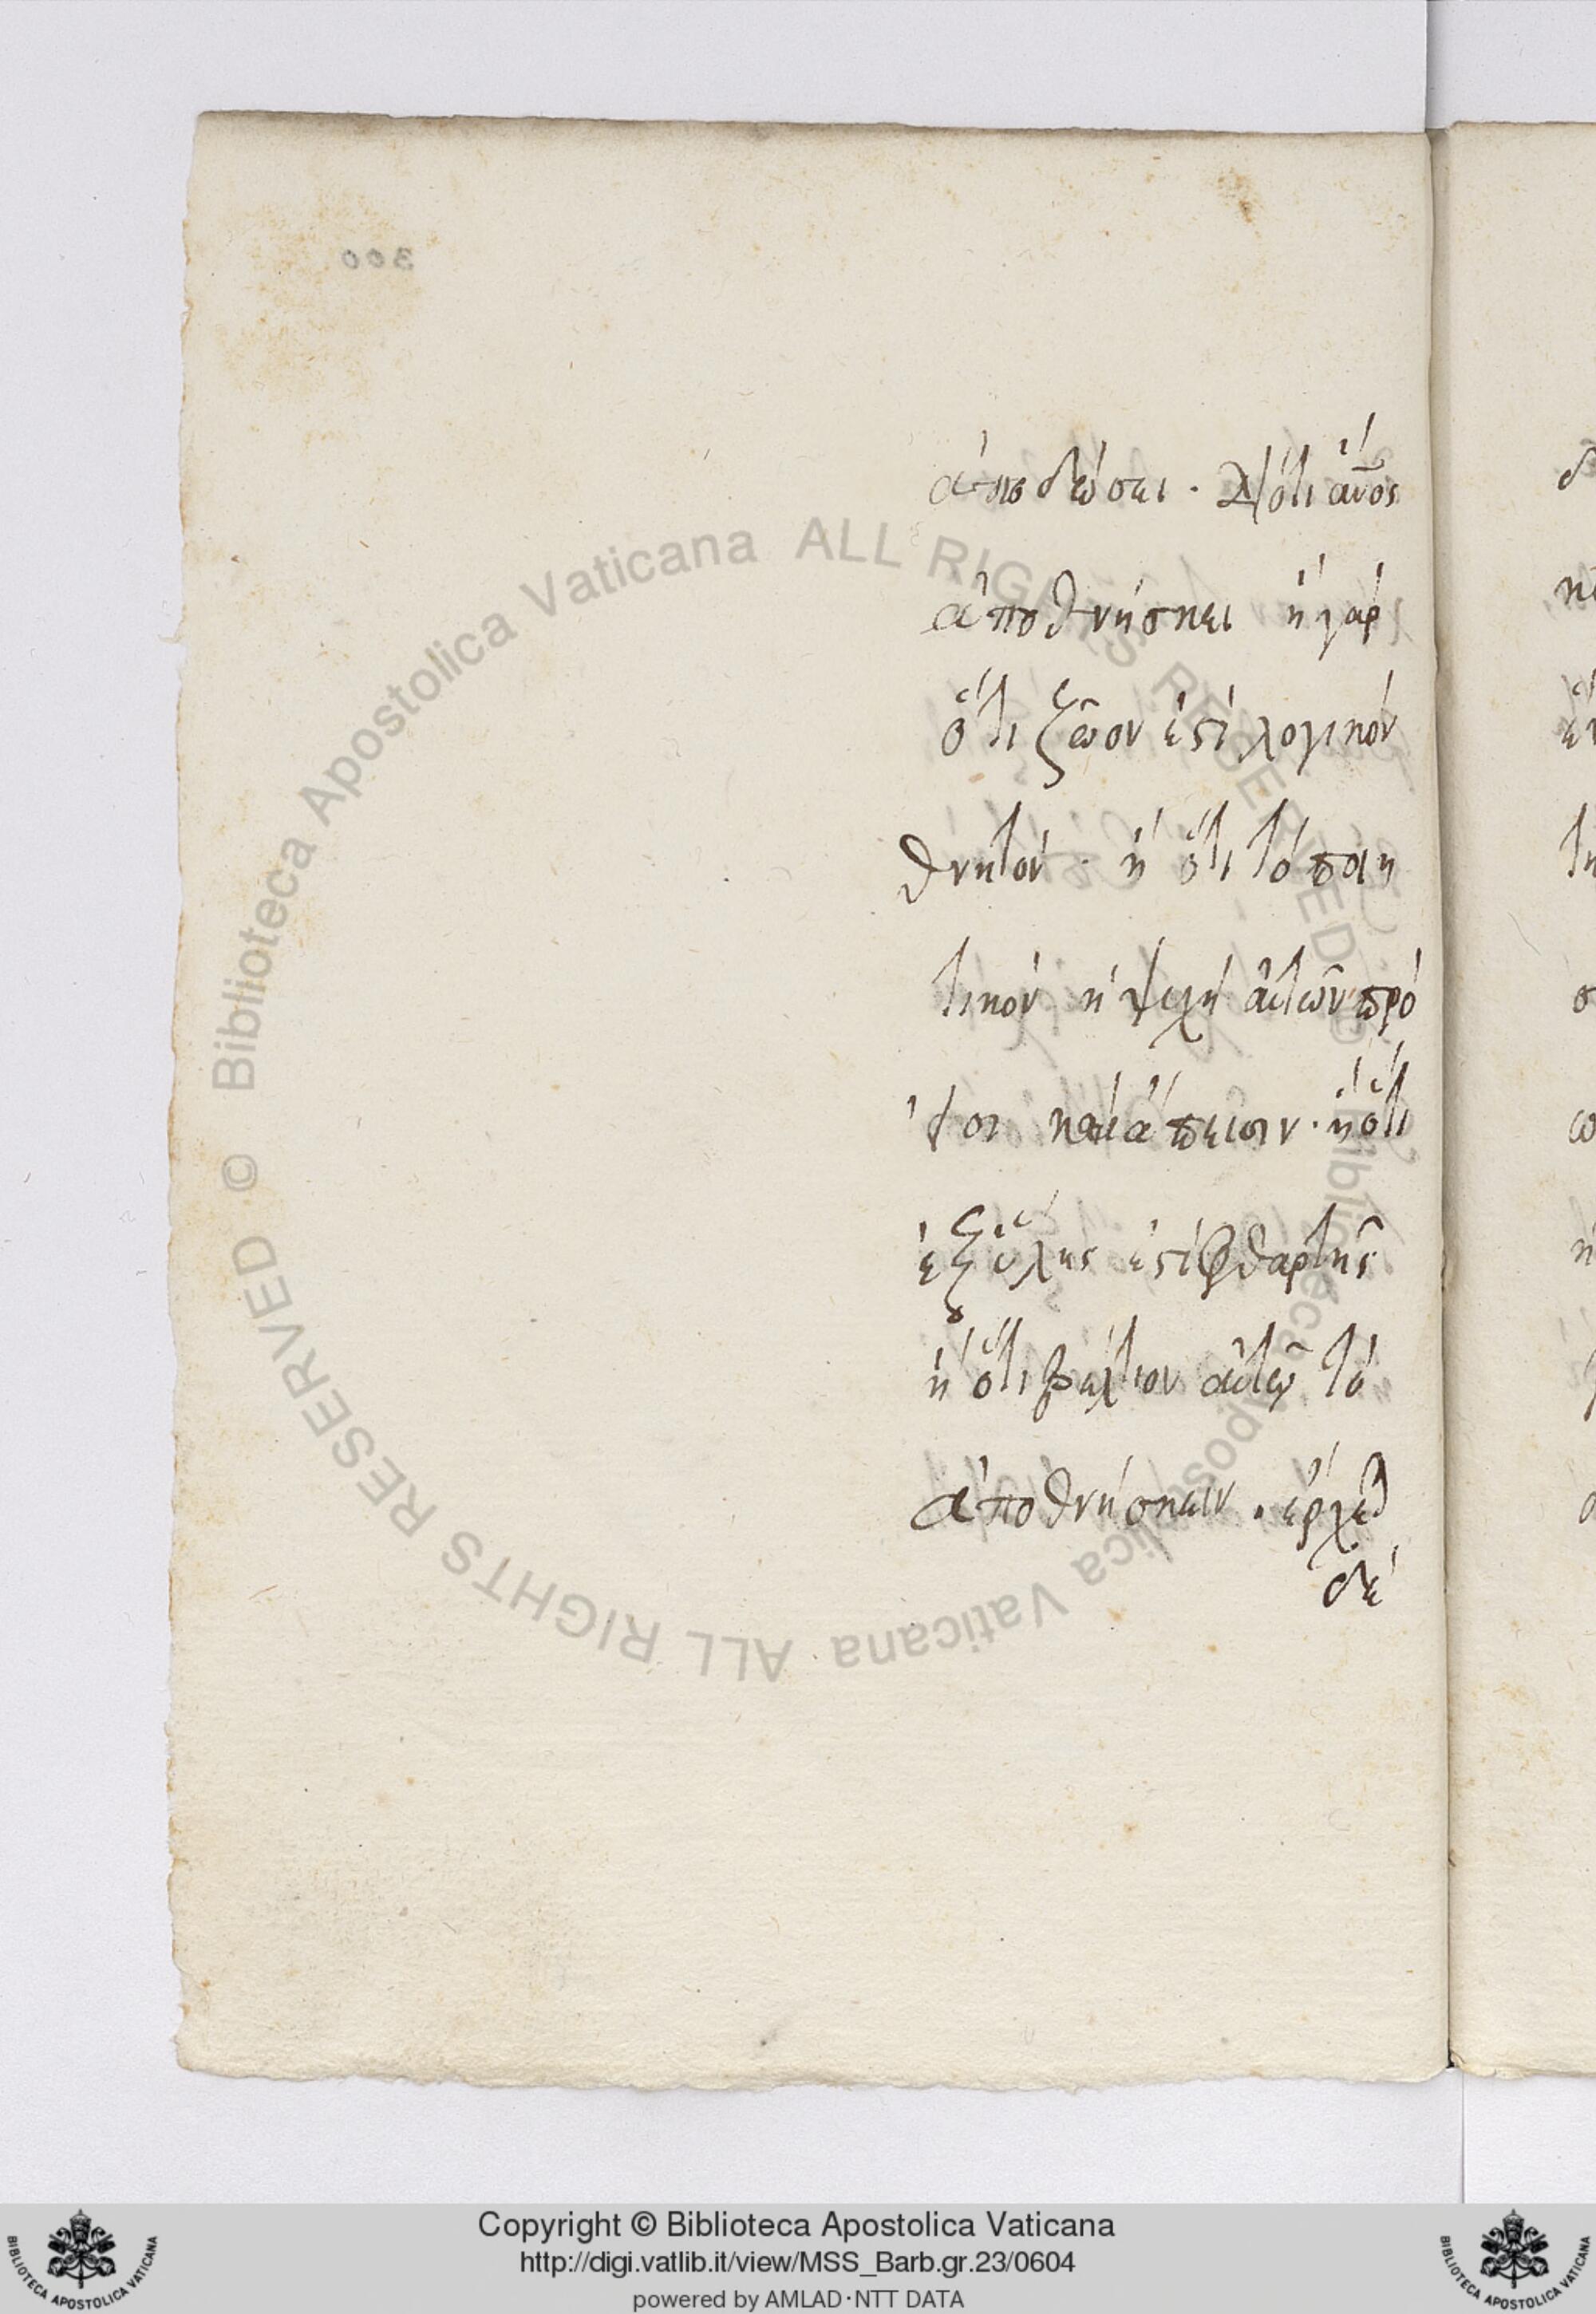 ἀποδώσει. διότι ἄνος
ἀποθνήσκει ἢ γάρ
ὅτι ζῶον ἐστί λογικόν
θνητόν. ἢ ὅτι τὸ
τικόν ἡ ψυχή αὐτῶν
ἢ ὅτι
ἐξ ὕλης ἐστί φθαρτῆς
ἢ ὅτι βέλτιον αὐτῶ τὸ
ἀποθνήσκειν. ἔρχε
δέ
300
Biblioteca Apostolica Vaticana ALL RIGHTS RESERVED © Biblioteca Apostolica Vaticana ALL RIGHTS RESERVED ©
Copyright © Biblioteca Apostolica Vaticana
http://digi.vatlib.it/view/MSS_Barb.gr.23/0604
powered by AMLAD·NTT DATA
BIBLIOTECA APOSTOLICA VATICANA
BIBLIOTECA APOSTOLICA VATICANA